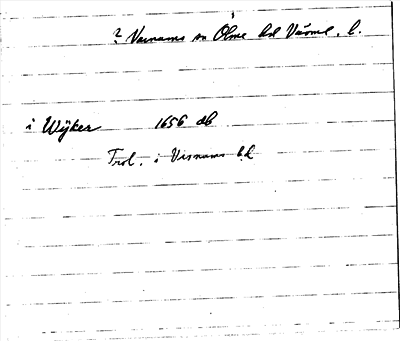 ? Varnums sn Ölme hd Värml. l.
i Wijker 1656 db
Trol. i Visnums hd